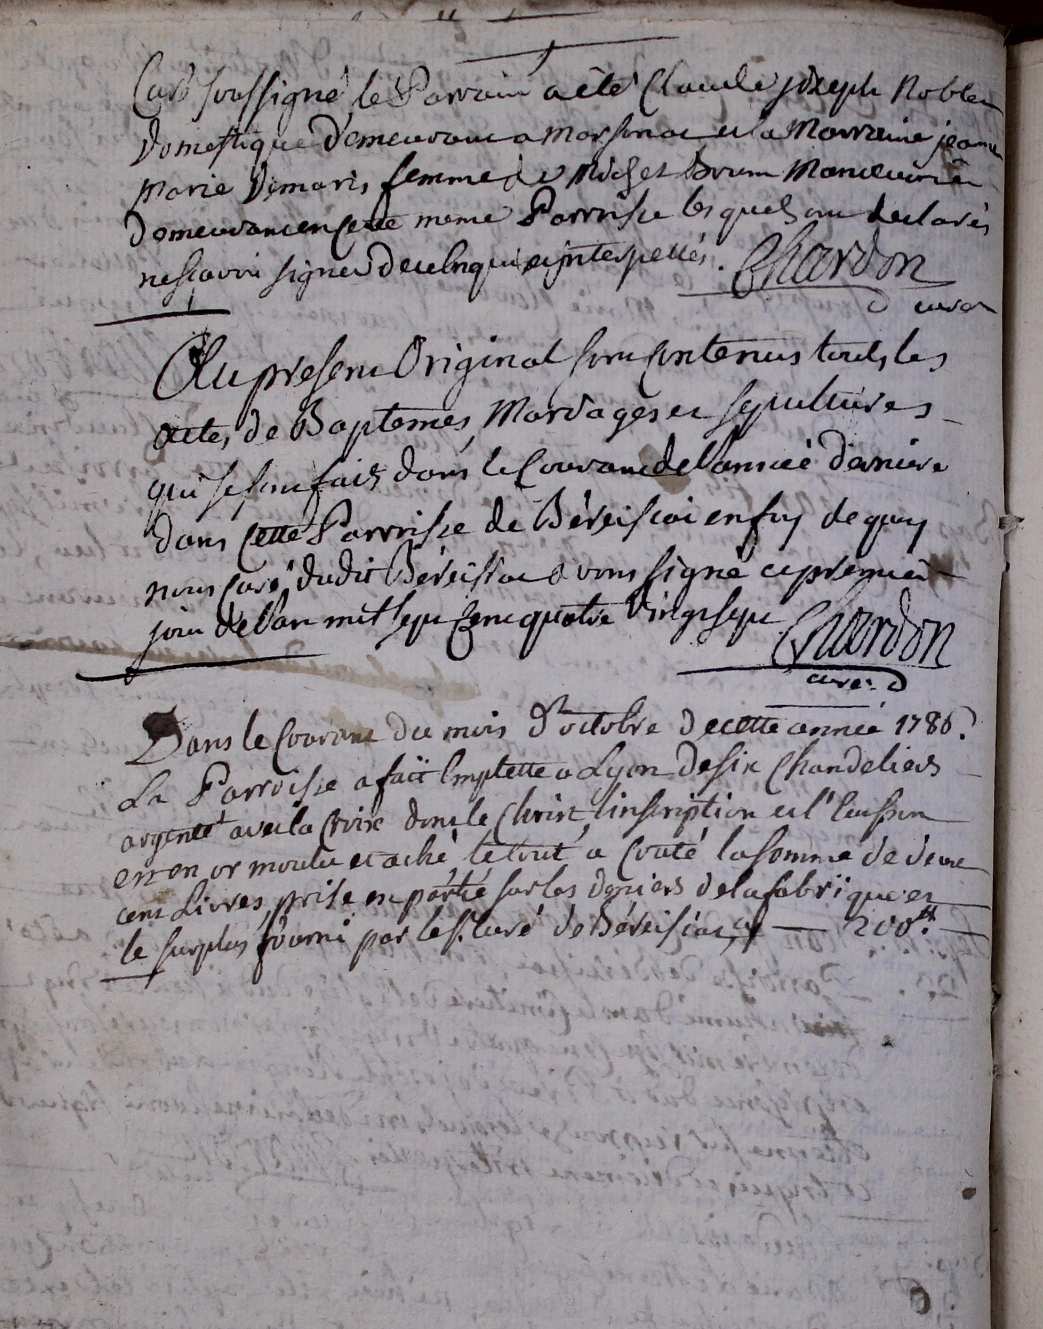 Curé soussigné, le Parrain a été Claude joseph Noblen
Domestique demeurant a Marsonat et la Marraine jeanne
marie Demaris femme de Michel Brun Manoeuvrier
demeurant en cette meme Parroisse lesquels ont declarés
ne scavoir signer de ce enquis et interpellés. Chardon
curé
Au present Original sont contenus touts les
actes de Baptemes Mariages et sepultures
qui se sont faits dans le Courant de l'année derniere
dans cette Parroisse de Béréisiat en foy de quoy
nous Curé dudit Béréisiat avons signé ce premier
jour de l'an mil sept cent quatre vingt sept Chardon
curé
Dans le Courant du mois d'octobre de cette année 1786.
La Parroisse a fait Emplette a Lyon de six Chandeliers
argenté avec la Croix dont le Christ, l'inscription et l'Ecusson
en or moulu et aché le tout a Couté la somme de deux
cent Livres prise en partie sur les deniers de la fabrique et
le surplus fourni par le Sr. Curé de Béréisiat, cy — 200tt.